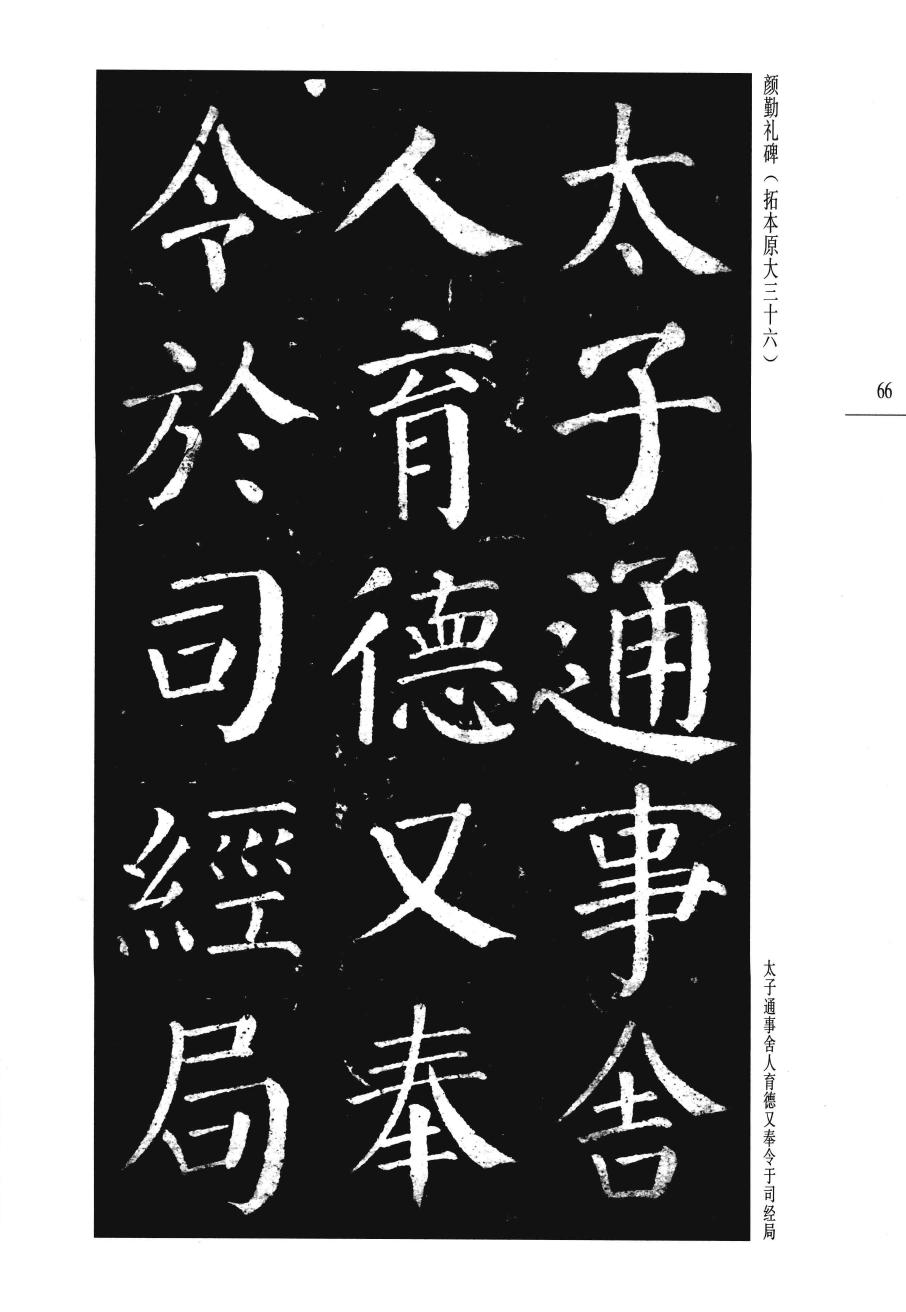 颜勤礼碑（拓本原大三十六）
66
太子通事舍
人育德又奉
令於司經局
太子通事舍人育德又奉令于司经局